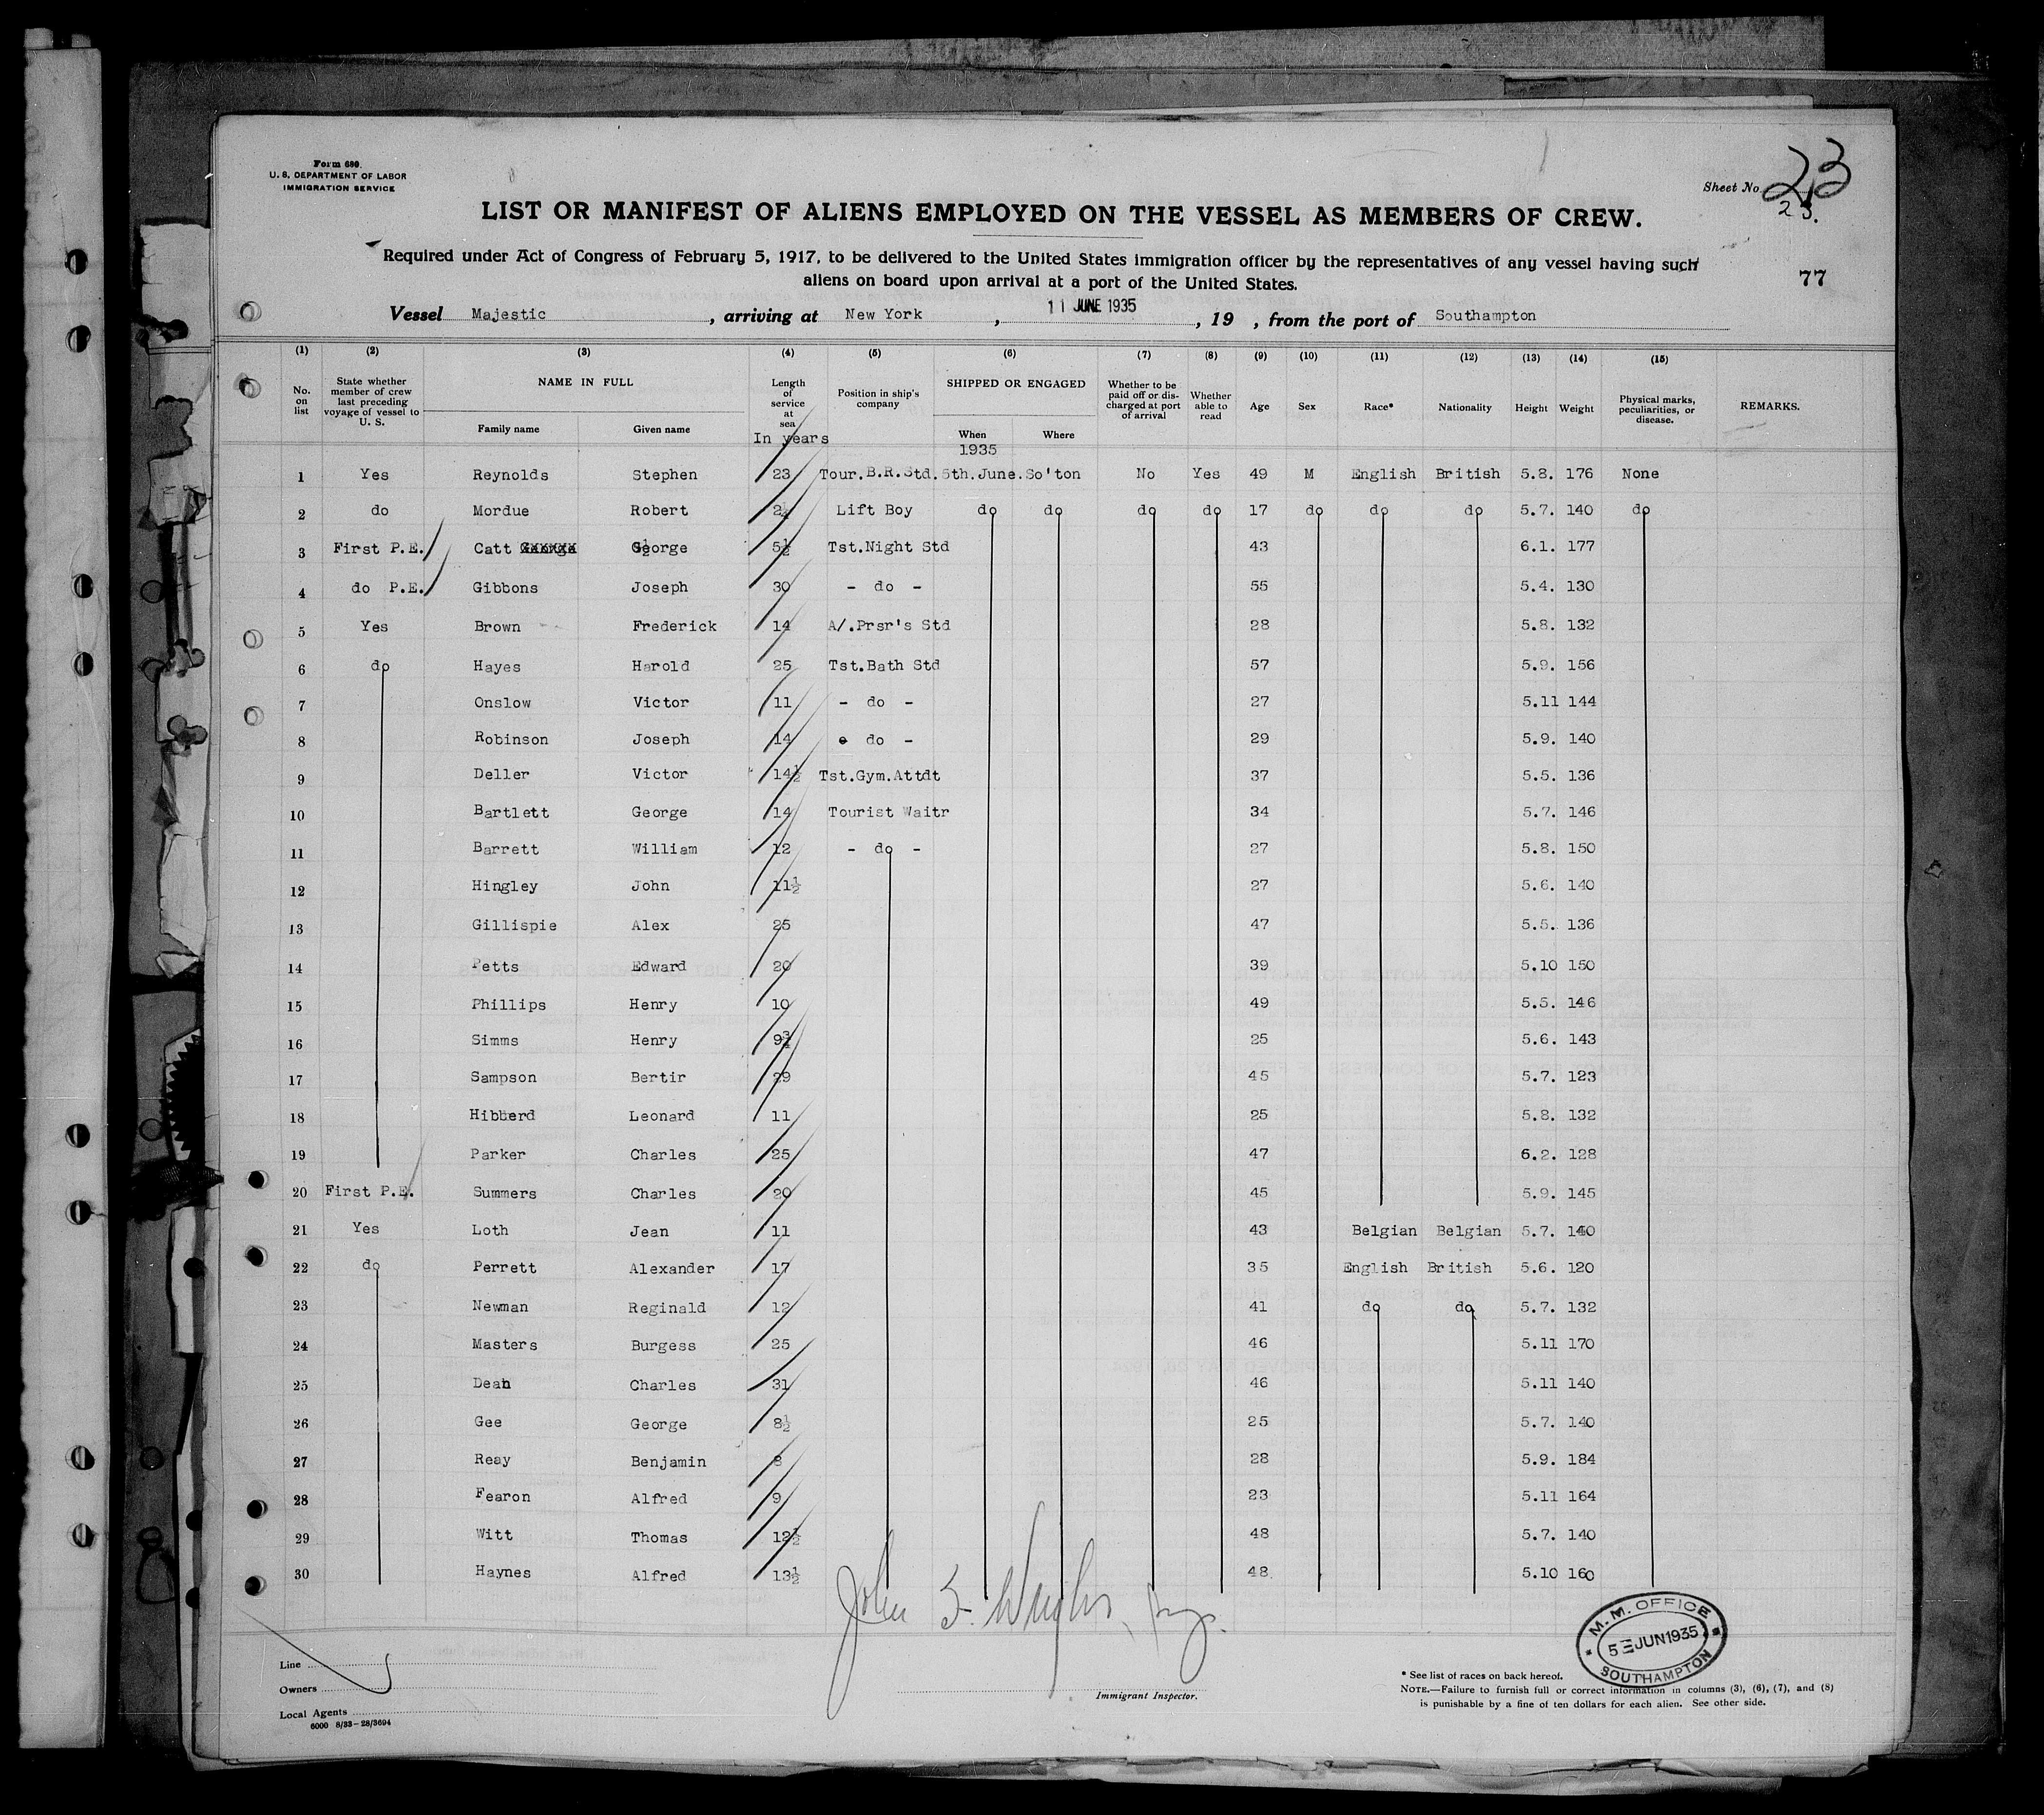 Form 680.
U. S. DEPARTMENT OF LABOR
IMMIGRATION SERVICE
Sheet No. 23
23.
LIST OR MANIFEST OF ALIENS EMPLOYED ON THE VESSEL AS MEMBERS OF CREW.
Required under Act of Congress of February 5, 1917, to be delivered to the United States immigration officer by the representatives of any vessel having such
aliens on board upon arrival at a port of the United States.
77
Vessel Majestic, arriving at New York, 11 JUNE 1935, 19 , from the port of Southampton
(1) (2) (3) (4) (5) (6) (7) (8) (9) (10) (11) (12) (13) (14) (15)
No. on list State whether member of crew last preceding voyage of vessel to U. S. NAME IN FULL Family name Given name Length of service at sea In years Position in ship's company SHIPPED OR ENGAGED When 1935 Where Whether to be paid off or discharged at port of arrival Whether able to read Age Sex Race* Nationality Height Weight Physical marks, peculiarities, or disease. REMARKS.
1 Yes Reynolds Stephen 23 Tour.B.R.Std. 5th.June. So'ton No Yes 49 M English British 5.8. 176 None
2 do Mordue Robert Lift Boy do do do do 17 do do do 5.7. 140 do
3 First P.E. Catt George 5½ Tst.Night Std 43 6.1. 177
4 do P.E. Gibbons Joseph 30 - do - 55 5.4. 130
5 Yes Brown Frederick 14 A/.Prsr's Std 28 5.8. 132
6 do Hayes Harold 25 Tst.Bath Std 57 5.9. 156
7 Onslow Victor 11 - do - 27 5.11 144
8 Robinson Joseph 14 do - 29 5.9. 140
9 Deller Victor 14½ Tst.Gym.Attdt 37 5.5. 136
10 Bartlett George 14 Tourist Waitr 34 5.7. 146
11 Barrett William 12 - do - 27 5.8. 150
12 Hingley John 11½ 27 5.6. 140
13 Gillispie Alex 25 47 5.5. 136
14 Petts Edward 20 39 5.10 150
15 Phillips Henry 10 49 5.5. 146
16 Simms Henry 9¾ 25 5.6. 143
17 Sampson Bertir 29 45 5.7. 123
18 Hibberd Leonard 11 25 5.8. 132
19 Parker Charles 25 47 6.2. 128
20 First P.E. Summers Charles 20 45 5.9. 145
21 Yes Loth Jean 11 43 Belgian Belgian 5.7. 140
22 do Perrett Alexander 17 35 English British 5.6. 120
23 Newman Reginald 12 41 do do 5.7. 132
24 Masters Burgess 25 46 5.11 170
25 Dean Charles 31 46 5.11 140
26 Gee George 8½ 25 5.7. 140
27 Reay Benjamin 8 28 5.9. 184
28 Fearon Alfred 9 23 5.11 164
29 Witt Thomas 12½ 48 5.7. 140
30 Haynes Alfred 13½ 48 5.10 160
John
M.M. OFFICE
5 JUN 1935
SOUTHAMPTON
Line
Owners
Local Agents
6000 8/33-28/3694
Immigrant Inspector.
* See list of races on back hereof.
NOTE.—Failure to furnish full or correct information in columns (3), (6), (7), and (8)
is punishable by a fine of ten dollars for each alien. See other side.